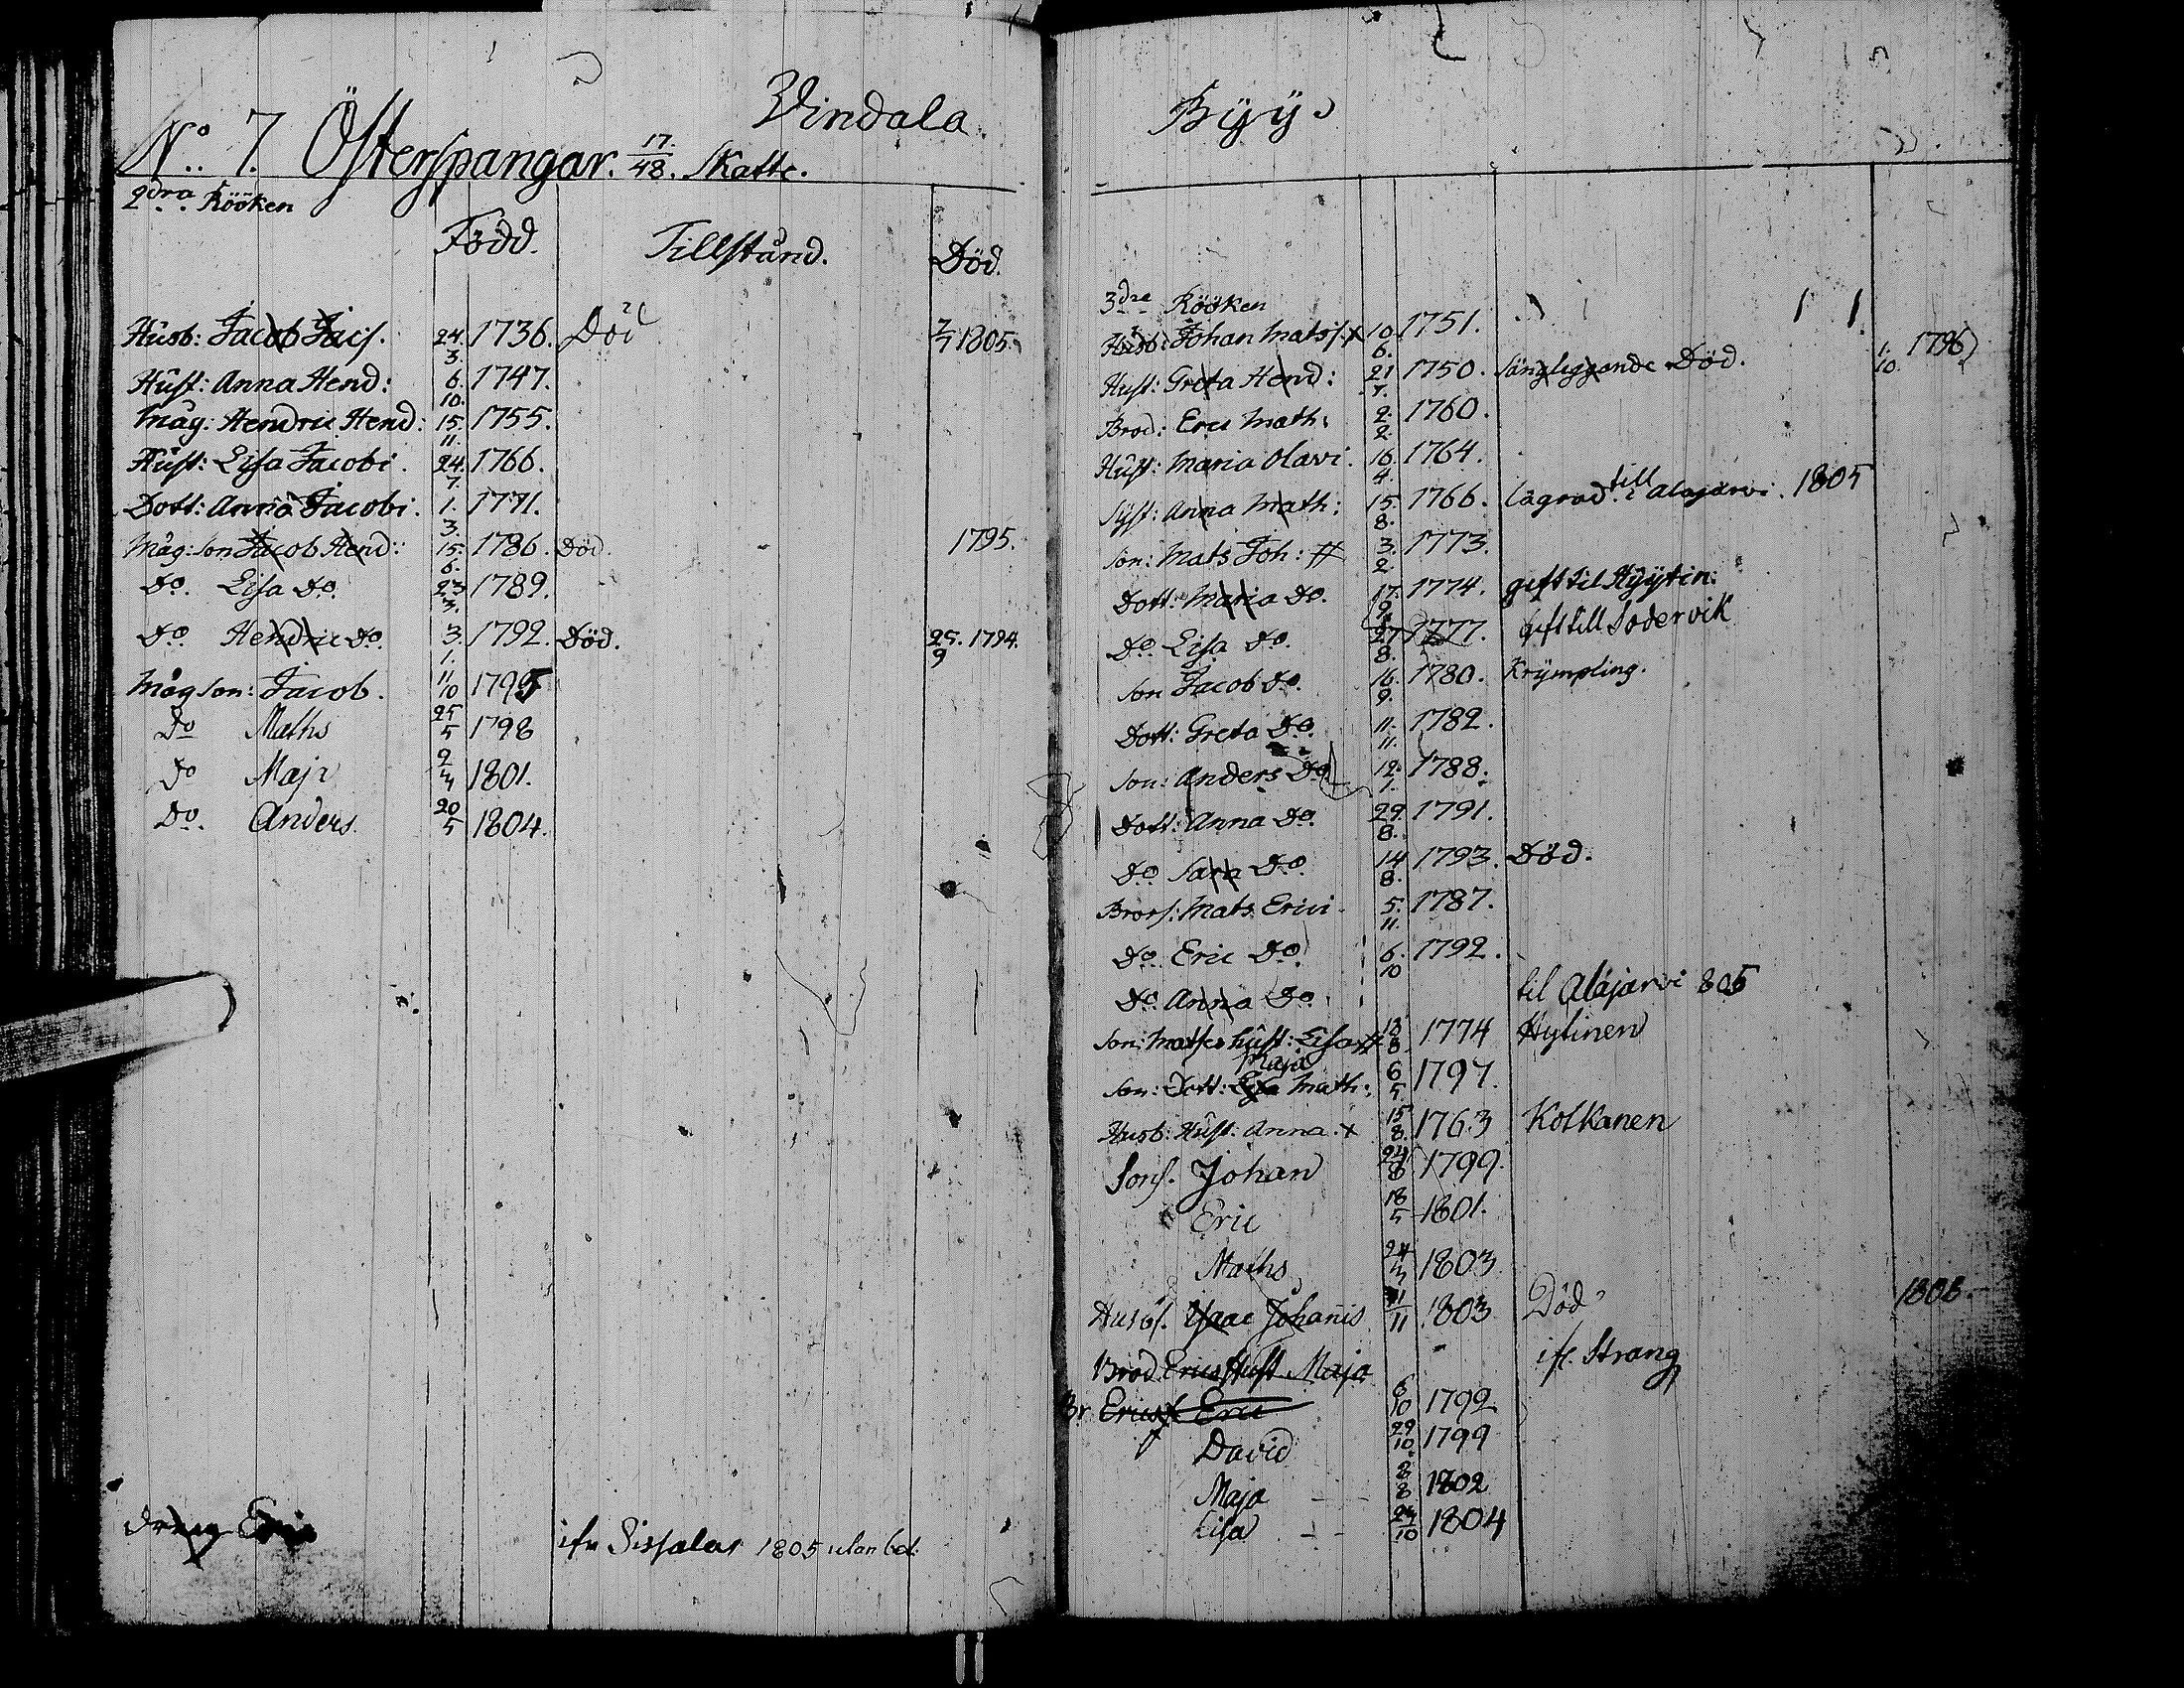 Vindala Byy
No. 7. Österspangar. 17/48. Skatte.
2dra Rööken
Född. Tillstånd. Död.
Husb: Jacob Jacs. 24. 3. 1736. Död 7/7 1805.
Hust: Anna Hend: 6. 10. 1747.
Måg: Hendric Hend: 15. 11. 1755.
Hust: Lisa Jacobi. 24. 7. 1766.
Dott: Anna Jacobi. 1. 3. 1771.
Måg: son Jacob Hend: 15. 6. 1786. Död. 1795.
Do. Lisa Do. 23 3. 1789.
Do Hendric Do. 3. 1. 1792. Död. 25. 9 1794.
Måg son: Jacob. 11/10 1795
Do Maths 25/5 1798
Do Maja 2/4 1801.
Do. Anders. 20/5 1804.
dreng Eric ifn Sissalar 1805 utan bet.
3dre Rööken
Husb: Johan Matss. x 10. 6. 1751.
Hust: Greta Hend: 21 7. 1750. sängliggande Död. 1. 10. 1796
Brod: Eric Math: 2. 2. 1760.
Hust: Maria Olavi. 16. 4. 1764.
Syst: Anna Math: 15. 8. 1766. lägrad. till Alajärvi. 1805
Son: Mats Joh: # 3. 2. 1773.
Dott: Maria Do. 17. 9. 1774. gift til Hyytin:
Do Lisa Do. 27 8. 1777. gift till Södervik
Son Jacob Do. 16. 9. 1780. Krympling.
Dott: Greta Do. 11. 11. 1782.
Son: Anders Do 12. 1. 1788.
Dott: Anna Do. 29. 8. 1791.
Do Sara Do. 14 8. 1793. Död.
Brors: Mats Erici. 5. 11. 1787.
Do Eric Do. 6. 10 1792.
Do Anna Do. til Alajarvi 805
Son: Matses hust: Lisa # 13 8. 1774 Hytinen
Maja
Son: Dott: Lisa Math: 6 5. 1797.
Husb: Hust: Anna. x 15 8. 1763 Kotkanen
Sons. Johan 24/8 1799.
Eric 18/5 1801.
Maths 24/4 1803
Husbs. Isaac Johanis 11/11 1803 Död 1806.
Brod Erics Hust Maja ifr. Strang
Br Erics Eric 6/10 1792
David 29/10 1799
Maja 8/8 1802
Lisa 24/10 1804